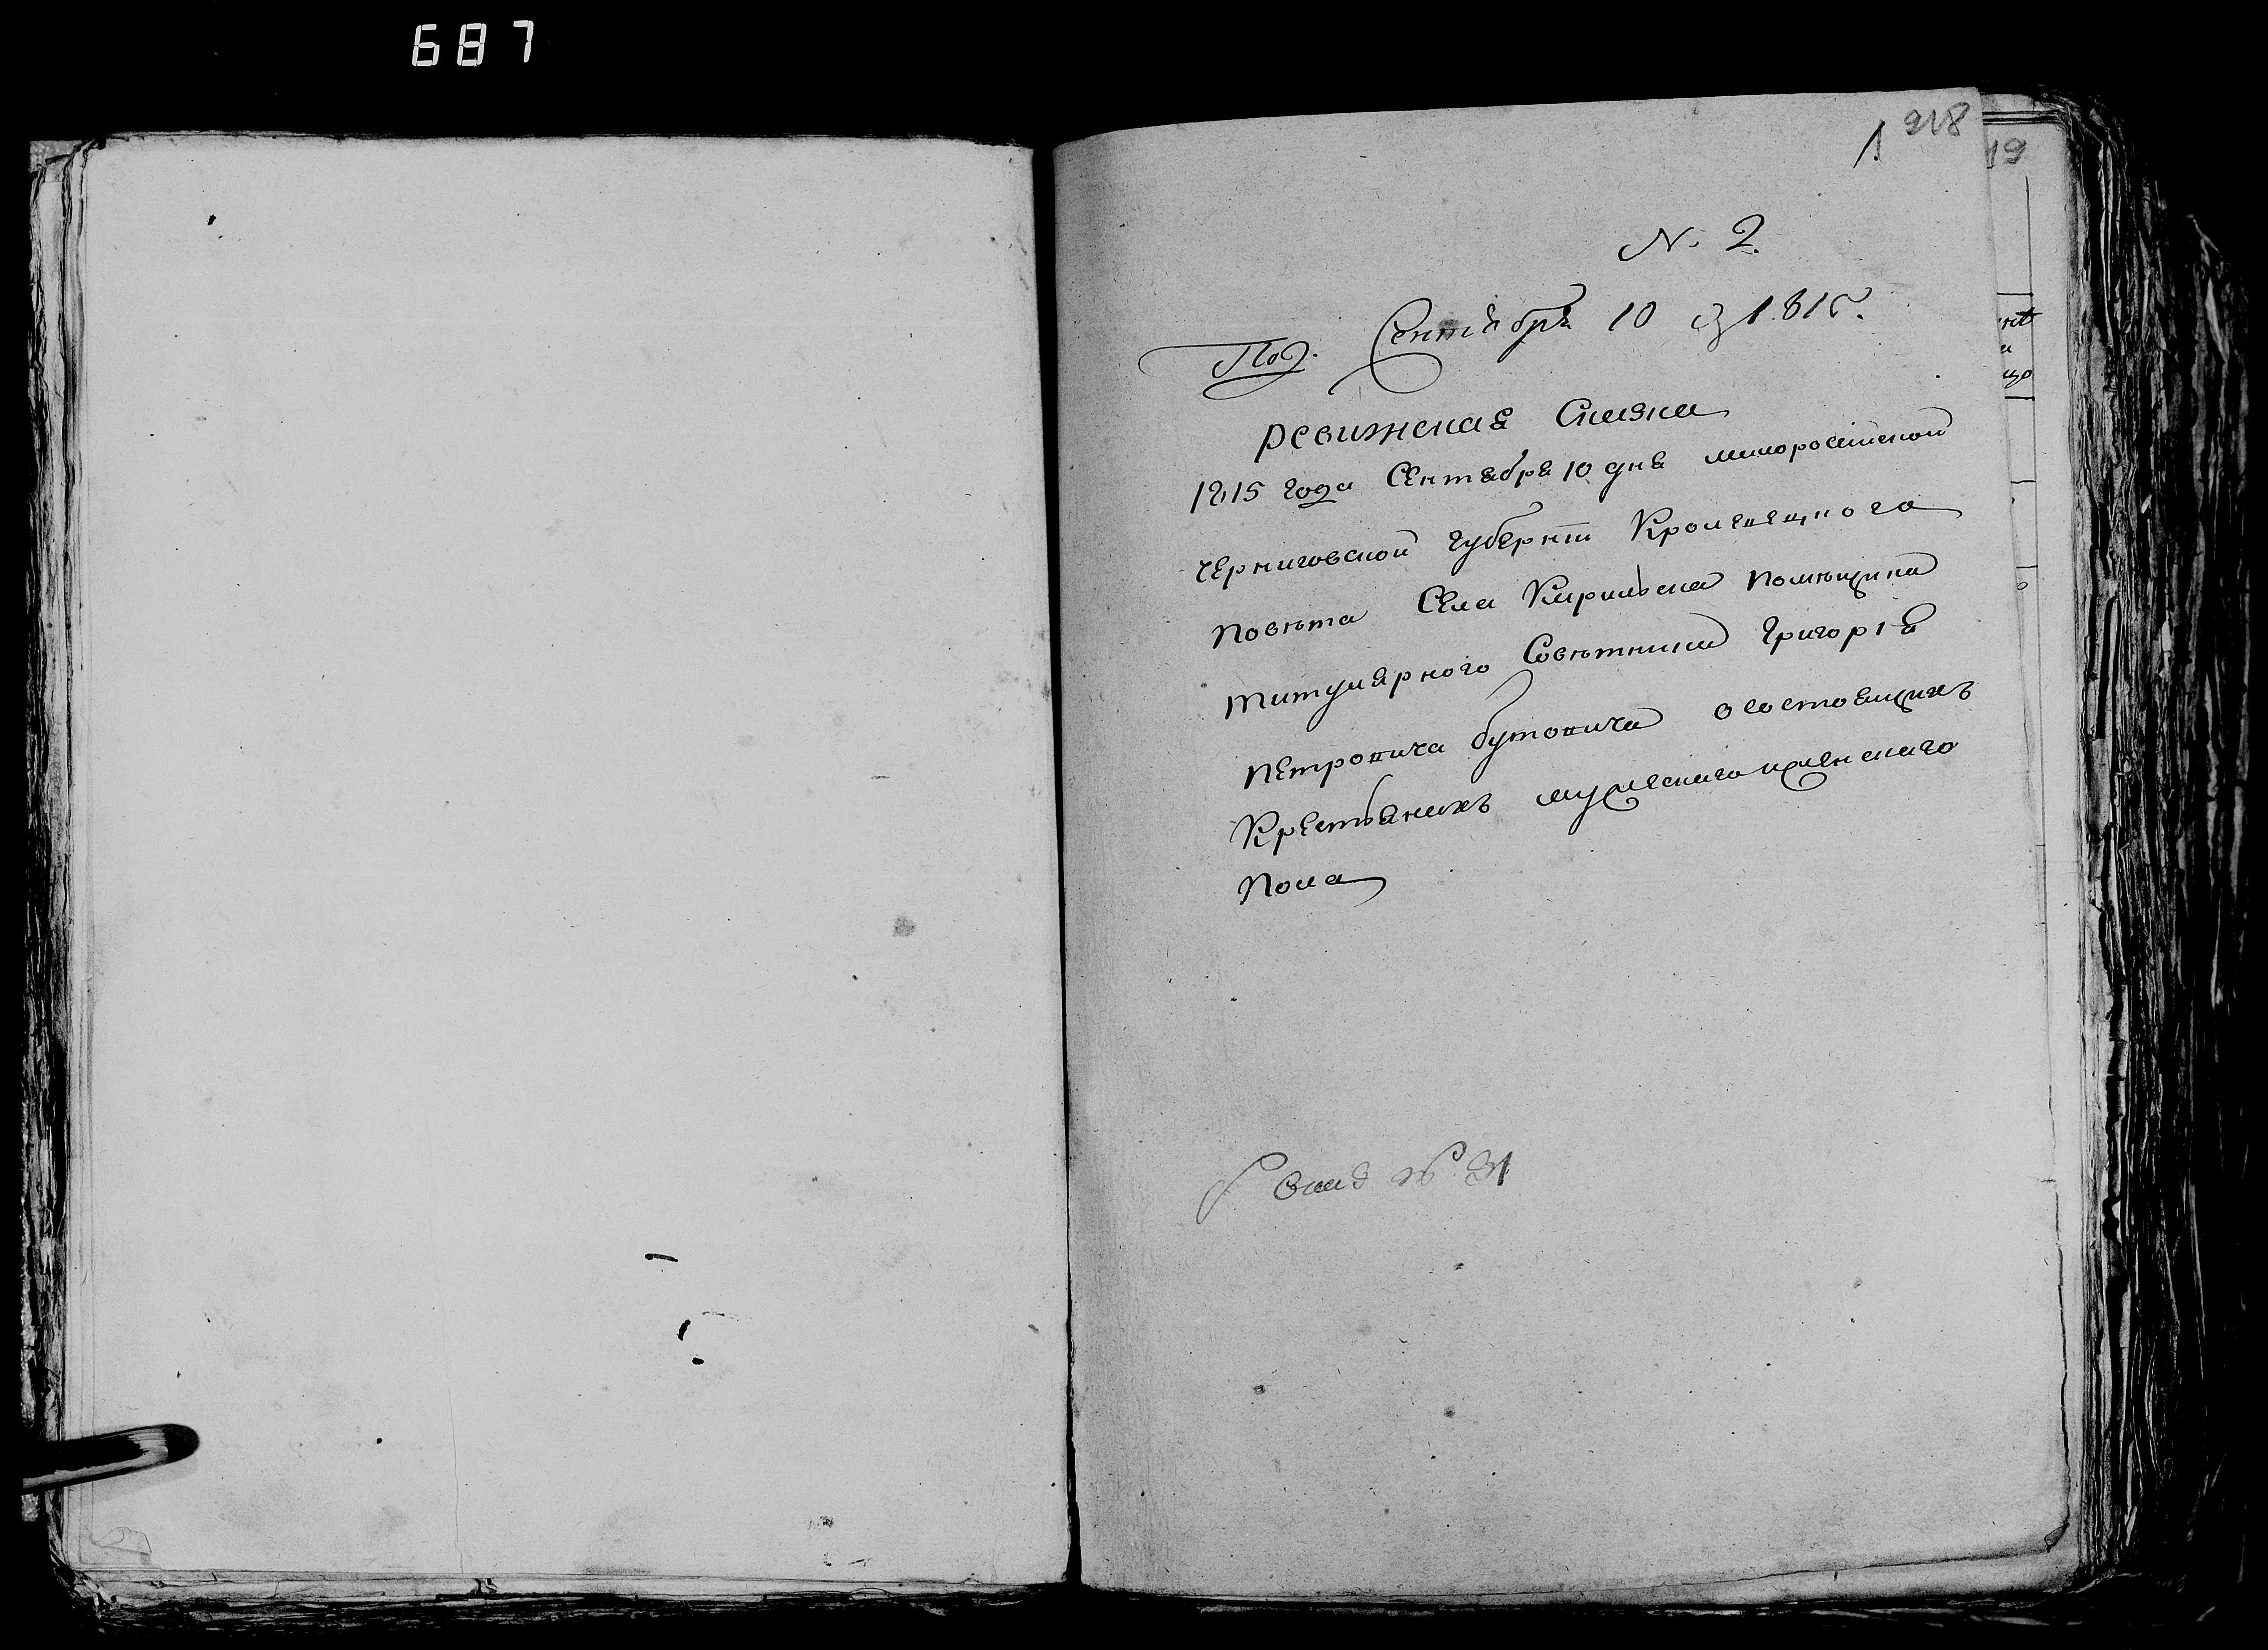 687
1. 918
19
N. 2.
Под. Сентября 10 д 1815.
ревижская Сказка
1815 года Сентября 10 дня малоросійской
черниговской губерніи Кролевецкого
повѣта Села Кирилвска помѣщика
титулярного Совѣтника Григорія
Петровича бутовича осостоящихъ
Крестьянихъ мужескаго иженскаго
пола
№ 31